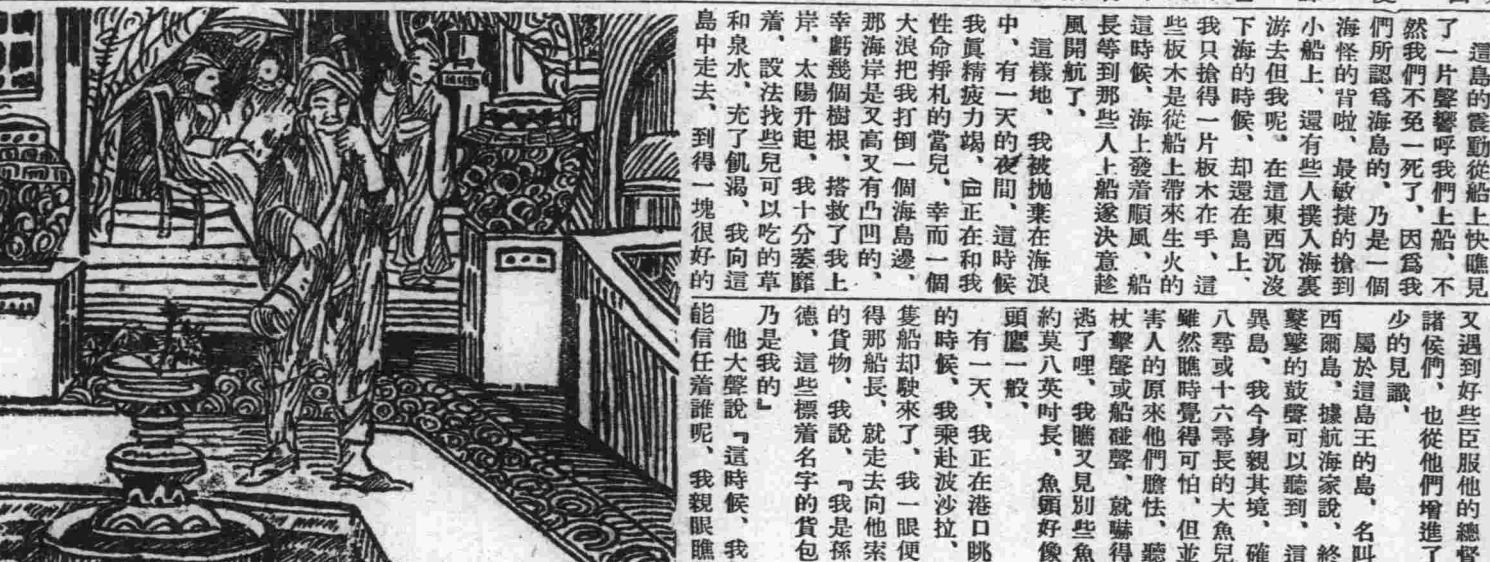 這島的震動從船上快瞧見
了一片聲響呼我們上船、不
然我們不免一死了、因爲我
們所認爲海島的、乃是一個
海怪的背啦、最敏捷的搶到
小船上、還有些人撲入海裏
游去但我呢、在這東西沉沒
下海的時候、却還在島上、
我只搶得一片板木在手、這
些板木是從船上帶來生火的
這時候、海上發着順風、船
長等到那些人上船遂決意趁
風開航了。
這樣地、我被拋棄在海浪
中、有一天的夜間、這時候
我眞精疲力竭、正在和我
性命掙札的當兒、幸而一個
大浪把我打倒一個海島邊、
那海岸是又高又有凸凹的、
幸虧幾個樹根、搭救了我上
岸、太陽升起、我十分萎靡
着、設法找些兒可以吃的草
和泉水、充了飢渴、我向這
島中走去、到得一塊很好的
又遇到好些臣服他的總督
諸侯們、也從他們增進了
少的見識、
屬於這島王的島、名叫
西爾島、據航海家說、終
鼕鼕的鼓聲可以聽到、這
異島、我今身親其境、確
八尋或十六尋長的大魚兒
雖然瞧時覺得可怕、但並
害人的原來他們膽怯、聽
杖擊聲或船碰聲、就嚇得
逃了哩、我瞧又見別些魚
約莫八英吋長、魚頭好像
頭鷹一般、
有一天、我正在港口眺
的時候、我乘赴波沙拉、
隻船却駛來了、我一眼便
得那船長、就走去向他索
的貨物、我說、『我是孫
德、這些標着名字的貨包
乃是我的』
他大聲說『這時候、我
能信任着誰呢、我親眼瞧